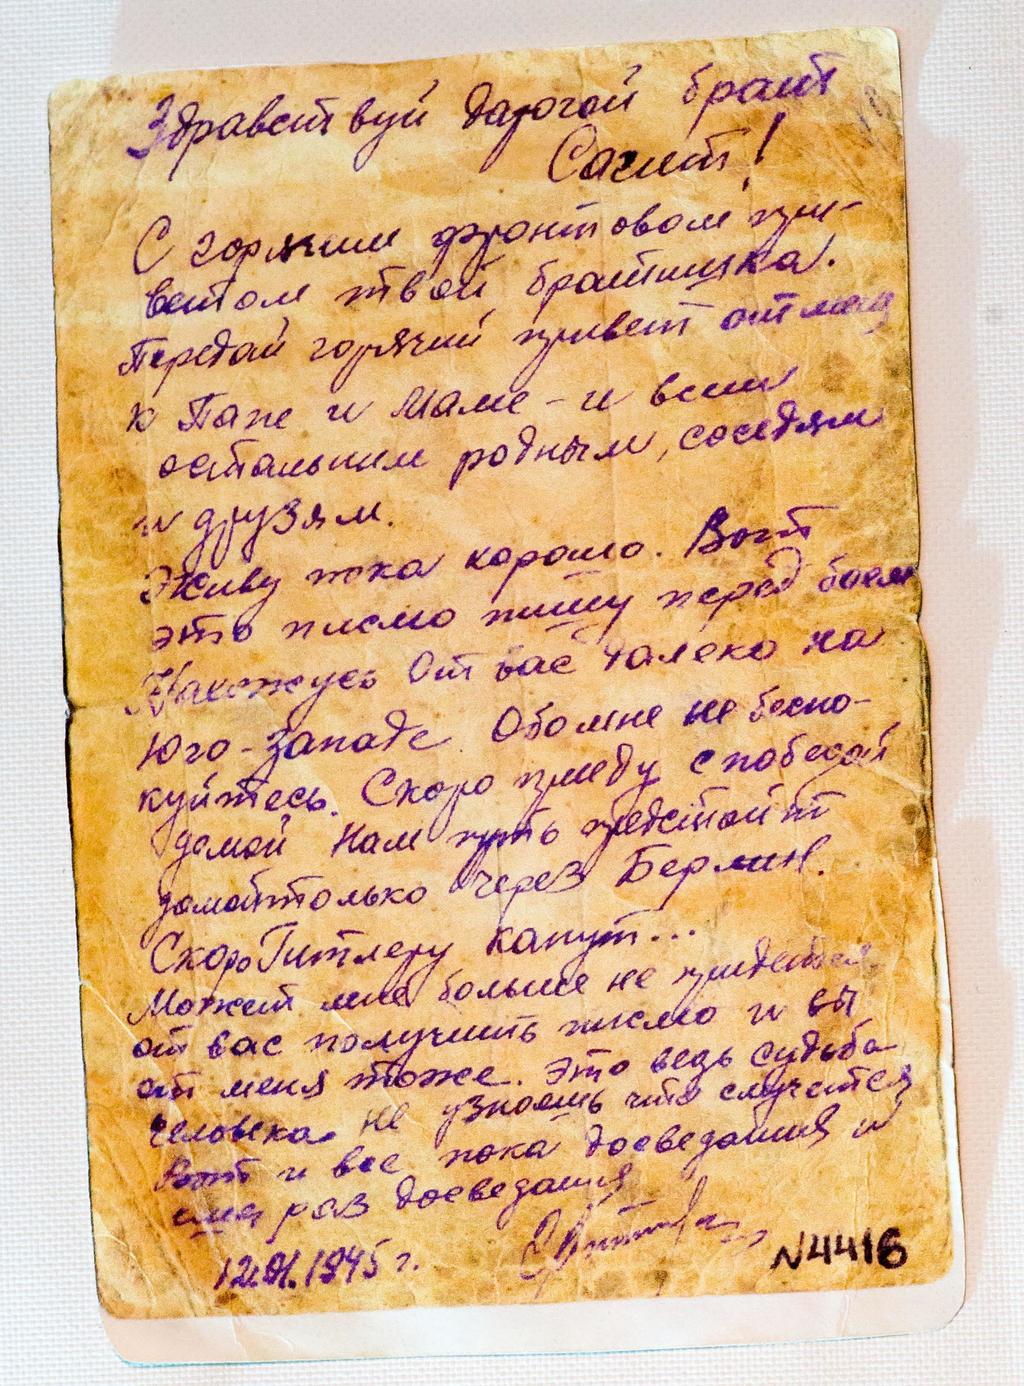 Здравствуй дарогой брат
Сагит!
С горячим фронтовом при-
ветом твой братишка.
Передай горячий привет от меня
к Папе и Маме - и всем
остальним родным, соседям
и друзям.
Живу пока хорошо. Вот
это писмо пишу перед боем
Нахожусь От вас далеко на
юго-западе. Обо мне не беспо-
куйтесь. Скоро приеду с победой
домой Нам путь предстоит
домой только через Берлин.
Скоро Гитлеру капут...
Может мне больше не придеться
от вас получить писмо и вы
от меня тоже. Это ведь судьба
человека не узнаешь что случится
Вот и все пока досведания и
ище раз досведания
1945 г.
N4416